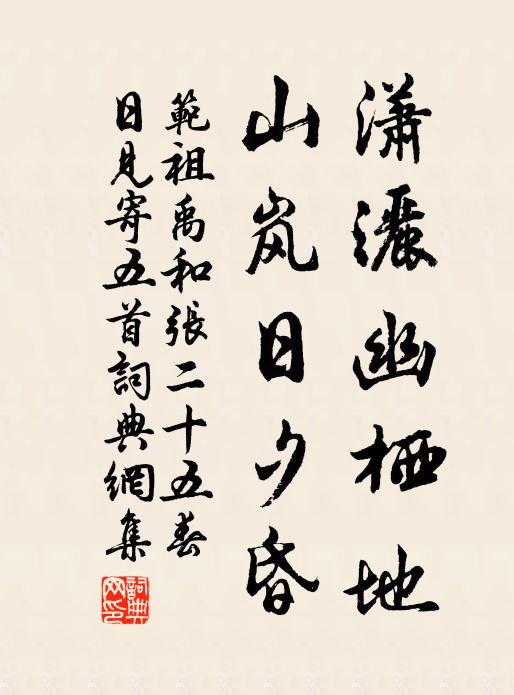 瀟灑幽栖地
山岚日夕昏
範祖禹和張二十五春
日見寄五首詞典網集
詞典网印